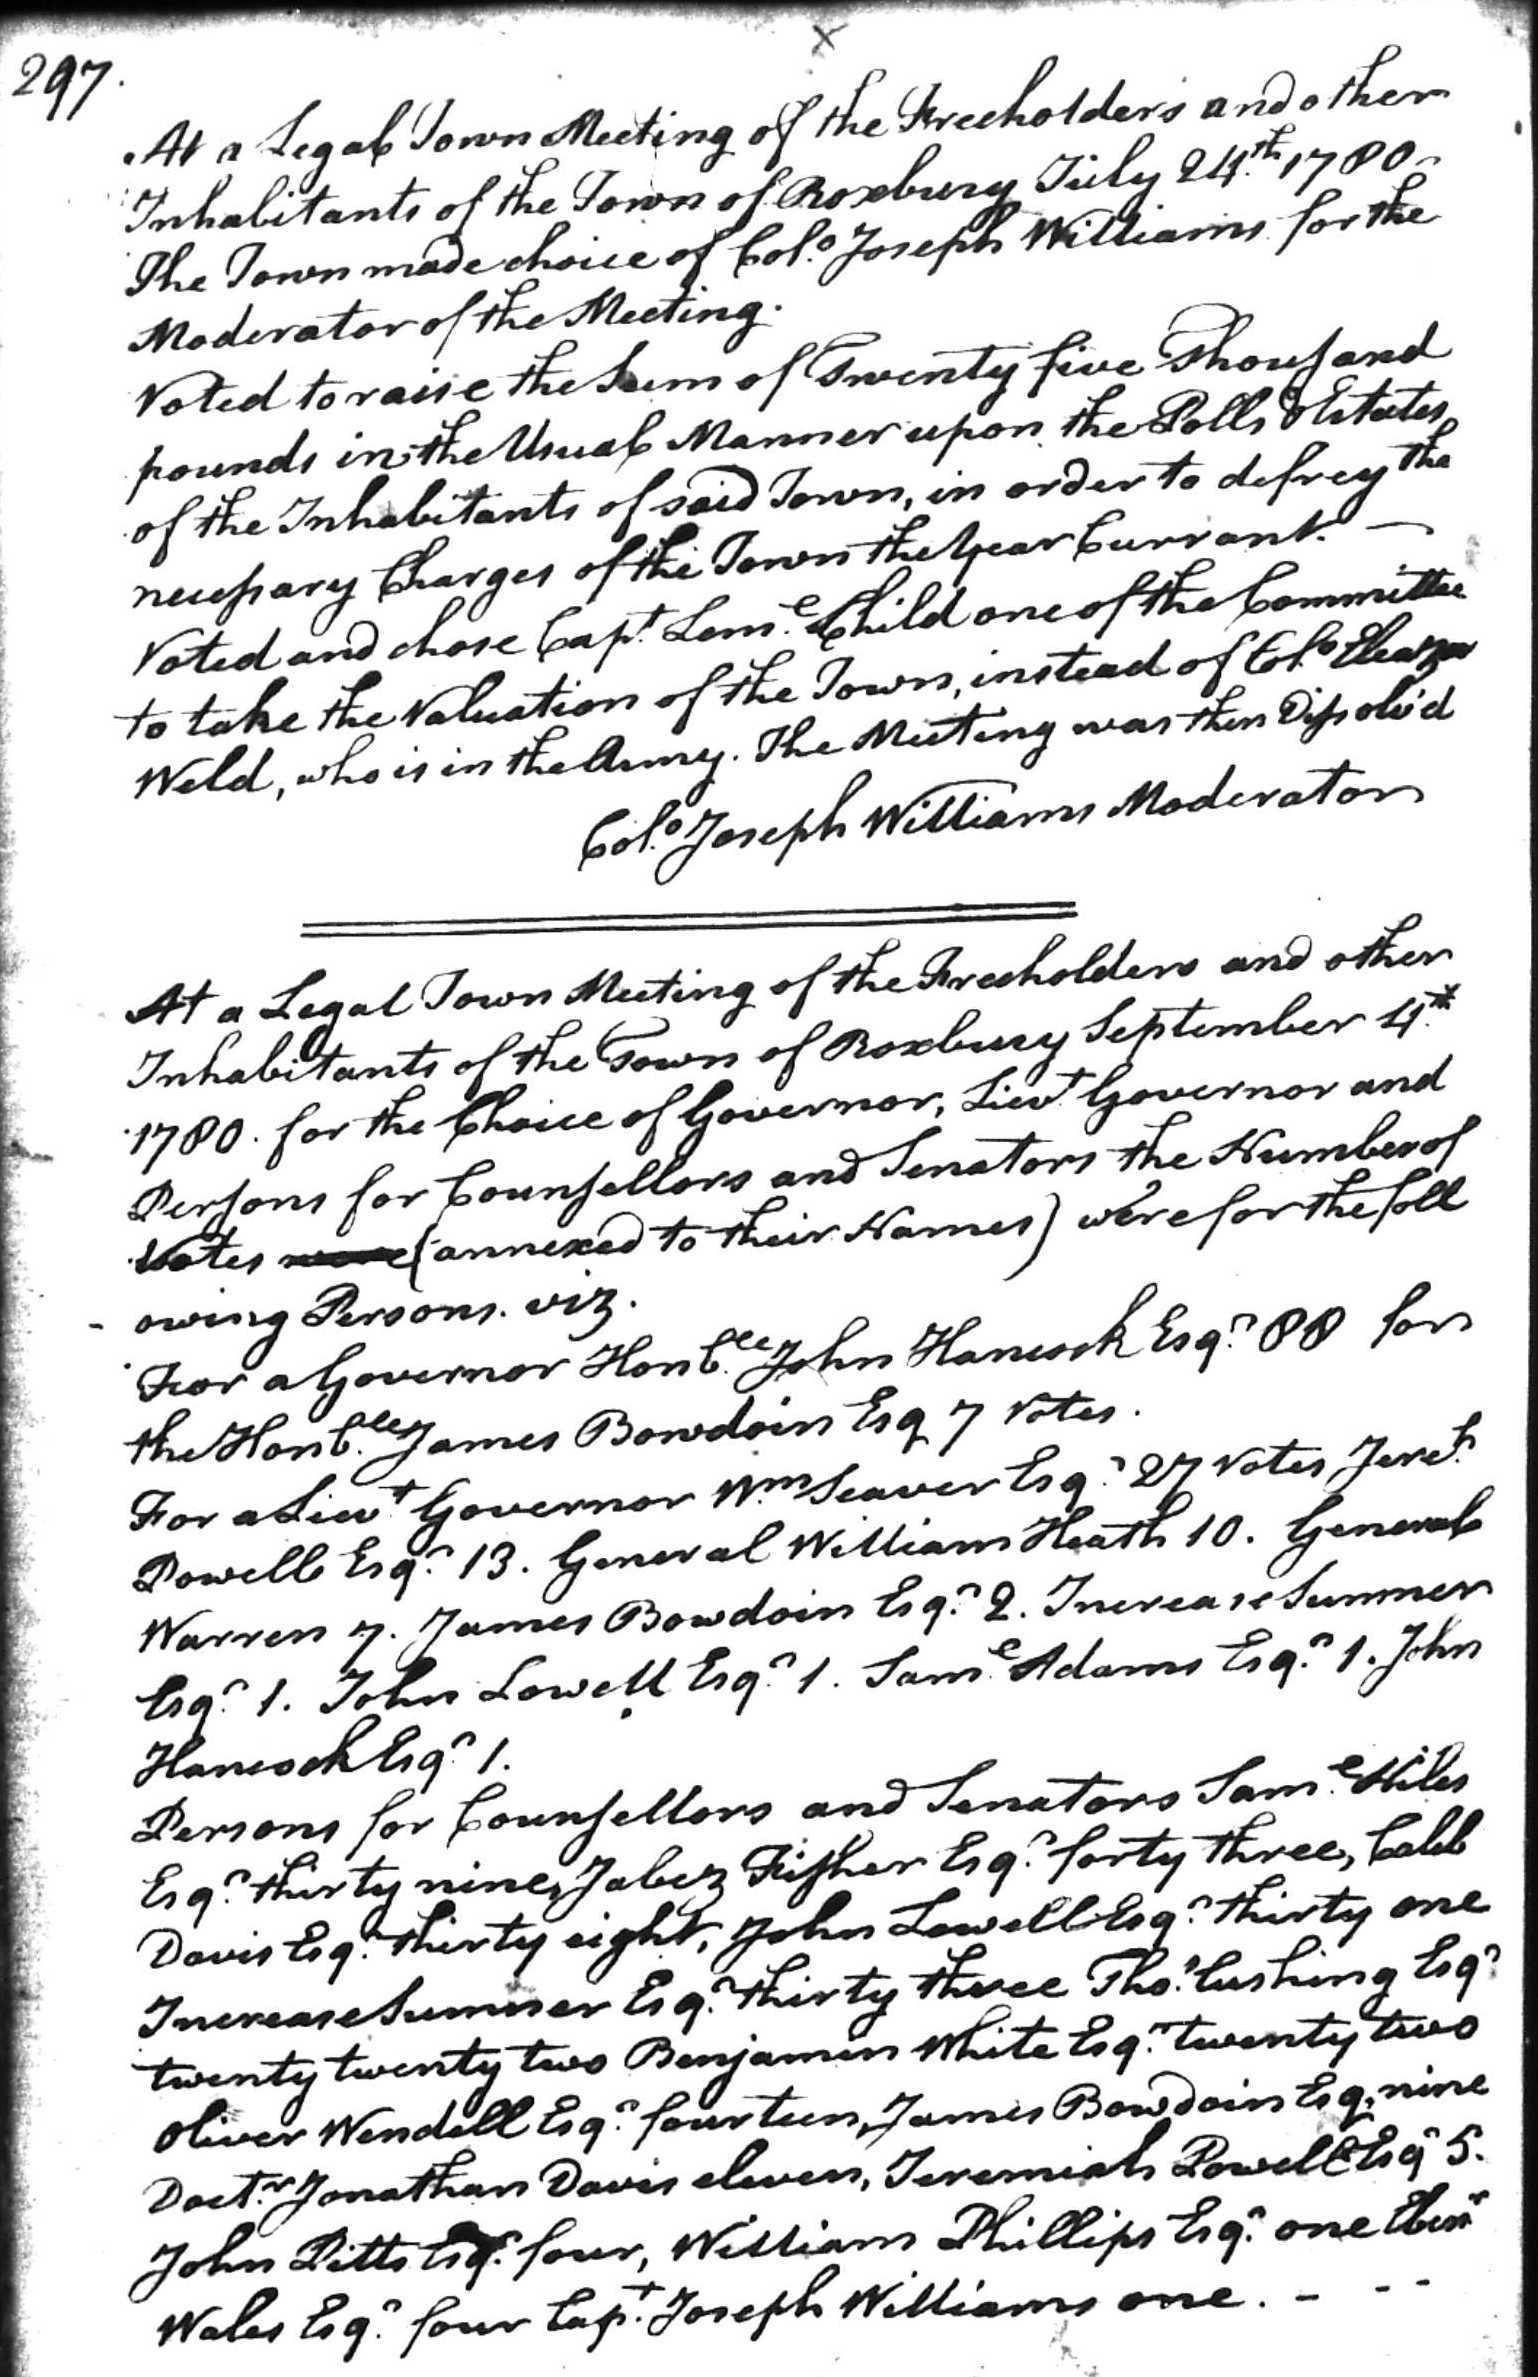 297.
At a Legal Town Meeting of the Freeholders and other
Inhabitants of the Town of Roxbury July 24.th 1780
The Town made choice of Col.o Joseph Williams for the
Moderator of the Meeting.
Voted to raise the Sum of Twenty five Thousand
pounds in the Usual Manner upon the Polls & Estates
of the Inhabitants of said Town, in order to defrey the
necessary Charges of the Town the Year Currant. —
Voted and chose Cap.t Lem.l Child one of the Committee
to take the Valuation of the Town, instead of Col.o Eleazer
Weld, who is in the Army. The Meeting was then Dissolv'd
Col.o Joseph Williams Moderator
At a Legal Town Meeting of the Freeholders and other
Inhabitants of the Town of Roxbury September 4.th
1780. for the Choice of Governor, Lieu.t Governor and
Persons for Counsellors and Senators the Number of
Votes (annexed to their Names) were for the foll
owing Persons. viz.
For a Governor Honb.le John Hancock Esq.r 88 for
the Honb.le James Bowdoin Esq 7 Votes.
For a Lieu.t Governor W.m Seaver Esq.r 27 Votes Jere.h
Powell Esq.r 13. General William Heath 10. General
Warren 7. James Bowdoin Esq.r 2. Increase Sumner
Esq.r 1. John Lowell Esq.r 1. Sam.l Adams Esq.r 1. John
Hancock Esq.r 1.
Persons for Counsellors and Senators Sam.l Niles
Esq.r thirty nine, Jabez Fisher Esq.r forty three, Caleb
Davis Esq.r thirty eight, John Lowell Esq.r thirty one
Increase Sumner Esq.r thirty three Tho.s Cushing Esq.r
twenty twenty two Benjamin White Esq.r twenty two
Oliver Wendell Esq.r fourteen, James Bowdoin Esq.r nine
Doct.r Jonathan Davis eleven, Jeremiah Powell Esq.r 5.
John Pitts Esq.r four, William Phillips Esq.r one Eben.r
Wales Esq.r four Cap.t Joseph Williams one. - - -